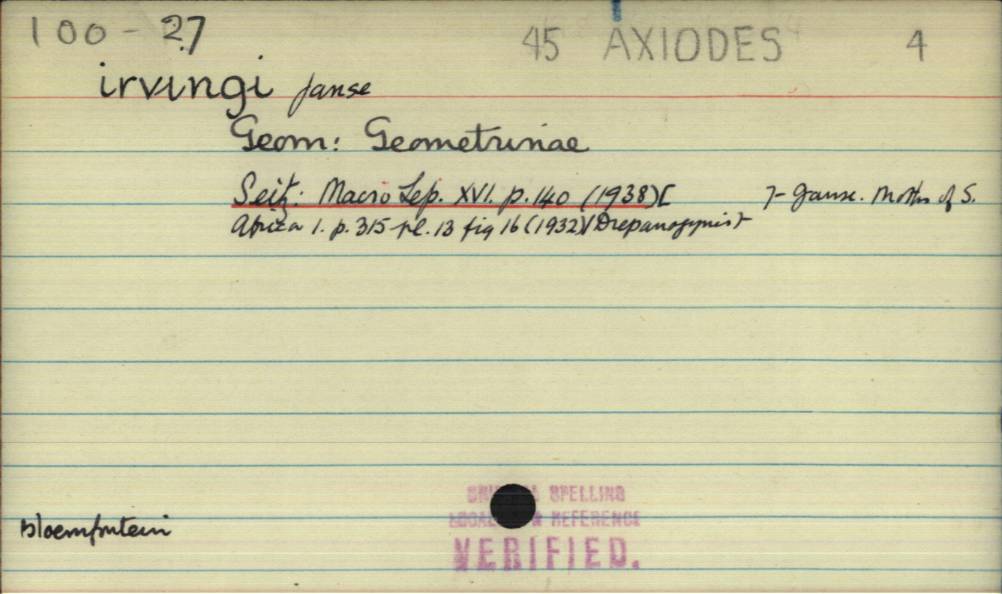 100-27 45 AXIODES 4
irvingi Janse
Geom: Geometrinae
Seitz: Macro Lep. XVI. p. 140 (1938) [ 7- Janse. Moths of S.
Africa 1. p. 315 pl. 13 fig 16 (1932) (Drepanogynis)
SPELLING
REFERENCE
VERIFIED.
Bloemfontein